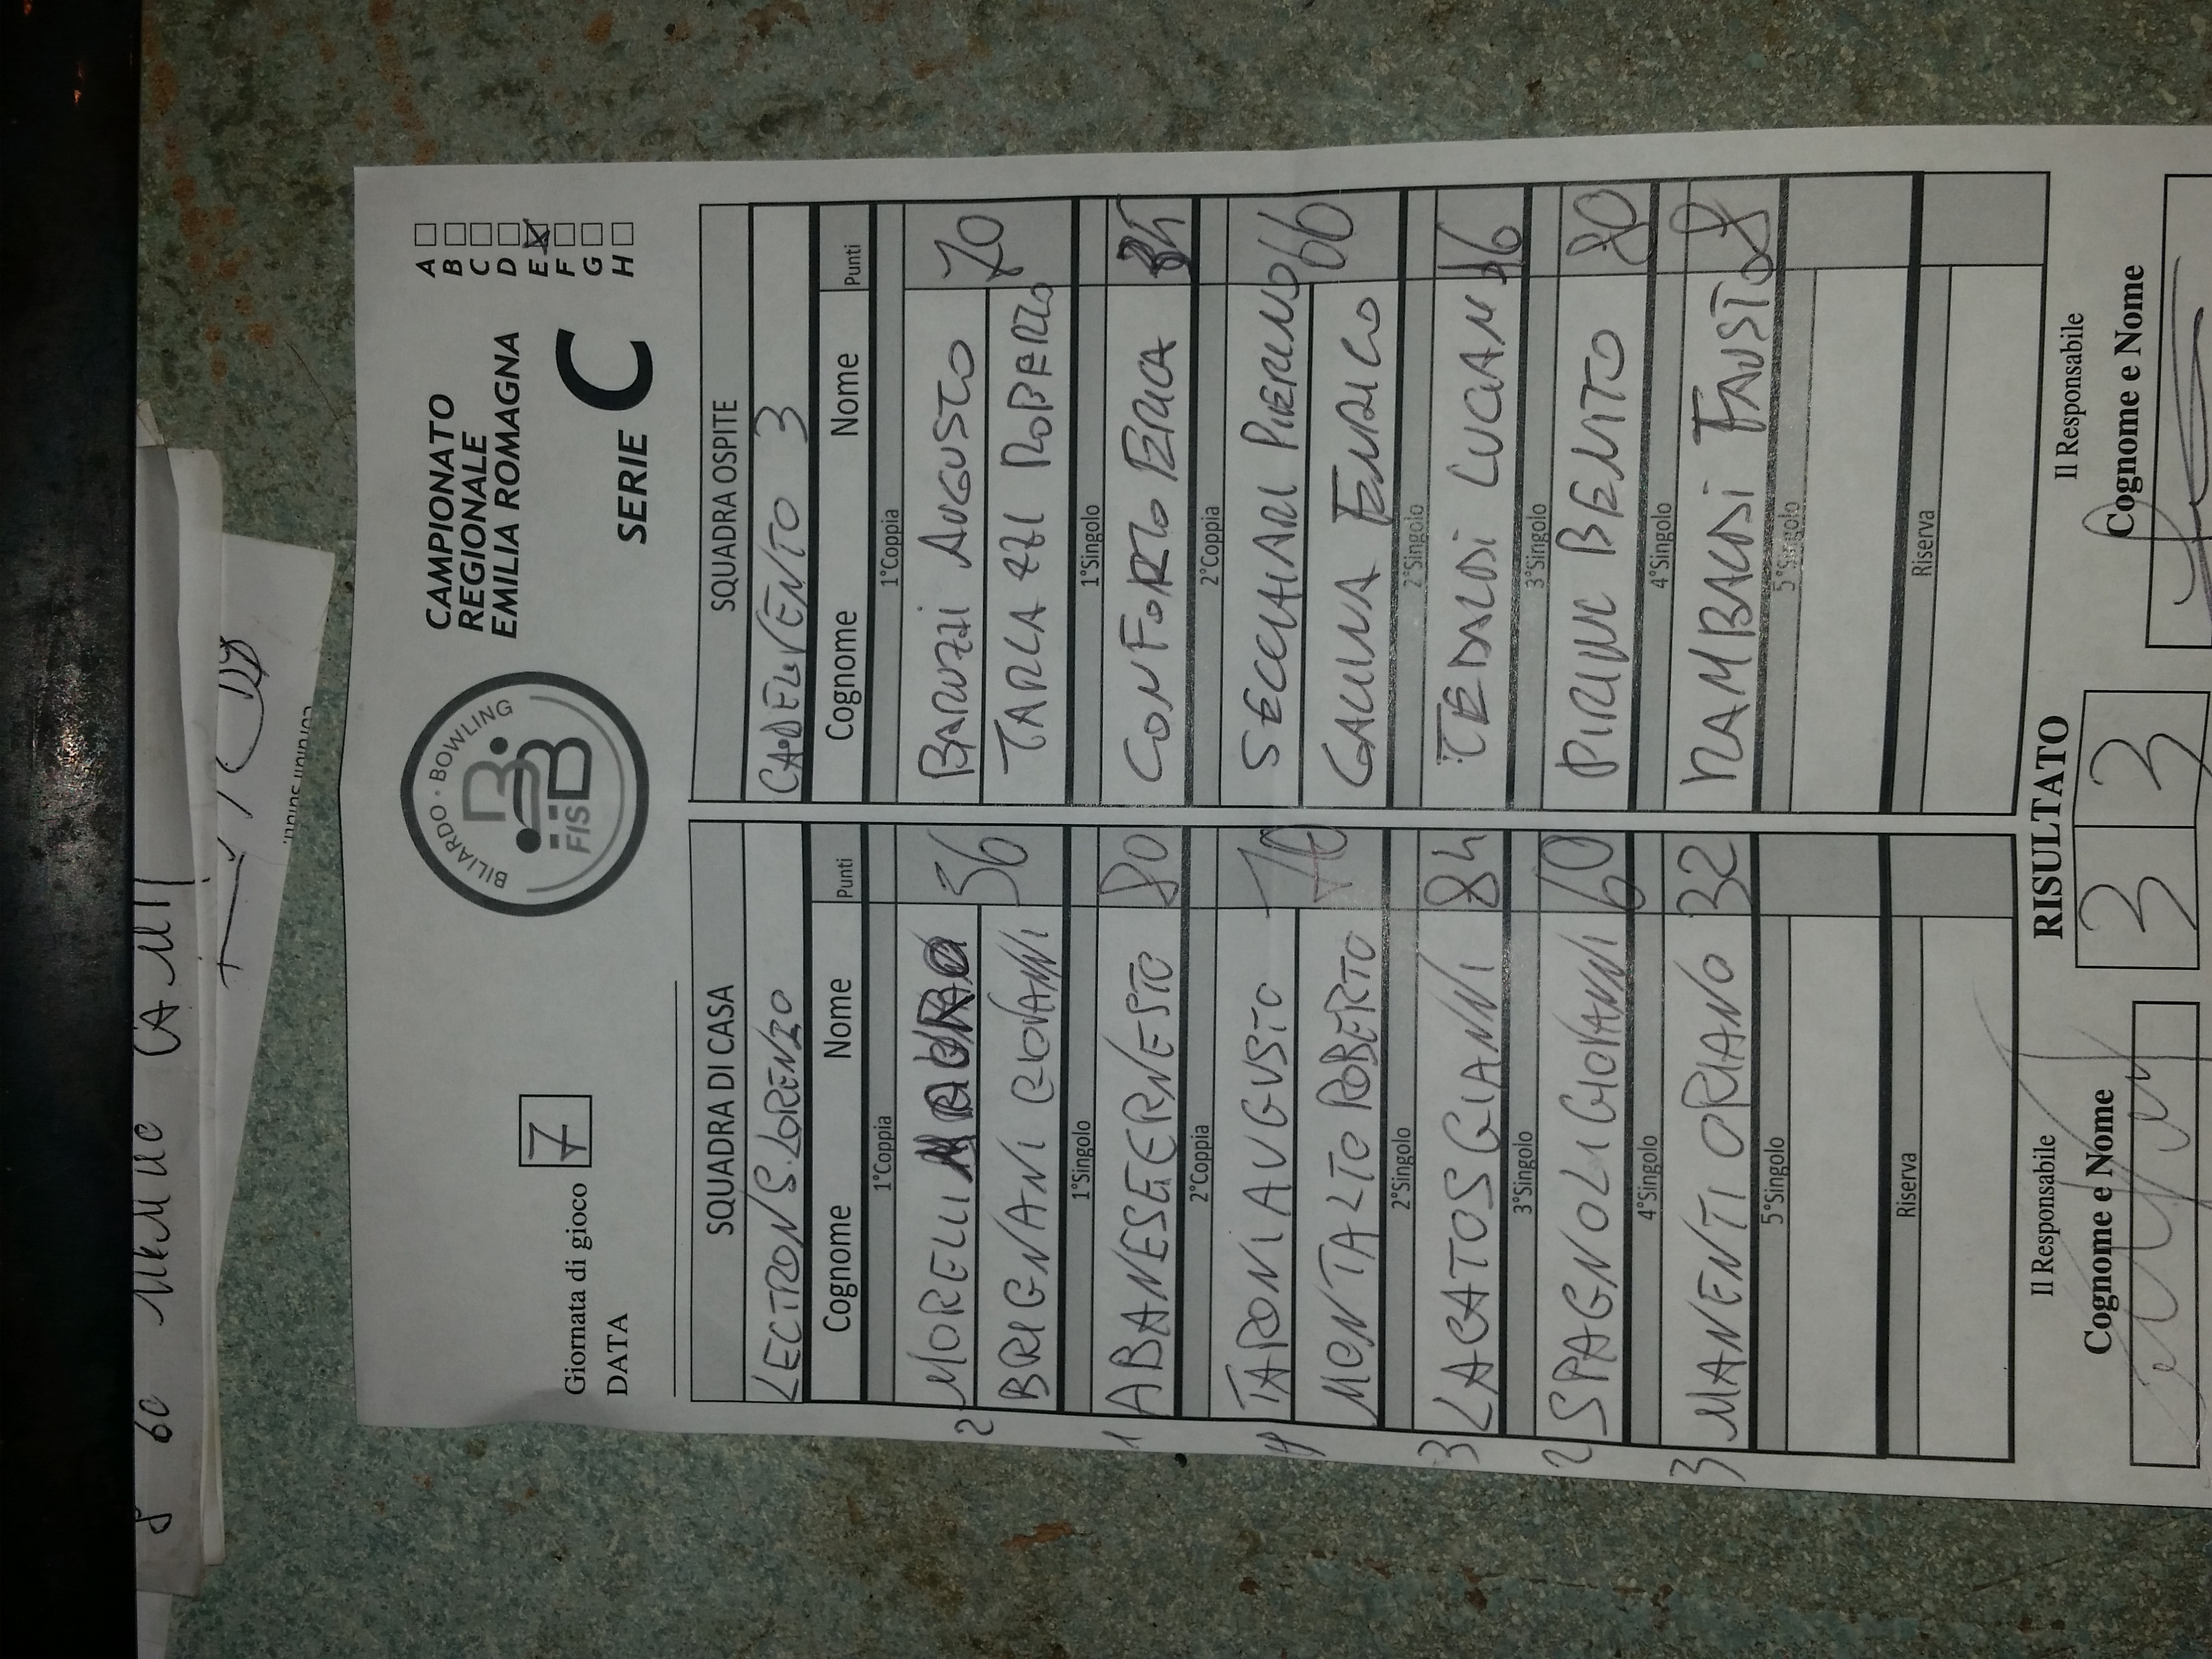 BILIARDO · BOWLING
FISBB
CAMPIONATO
REGIONALE
EMILIA ROMAGNA
SERIE C
A
B
C
D
E
F
G
H
Giornata di gioco 7
DATA
SQUADRA DI CASA
LECTRON S.LORENZO
Cognome Nome Punti
1°Coppia
MORELLI 56
BRIGNANI GIOVANNI
1°Singolo
ABANESE ERNESTO 80
2°Coppia
TARONI AUGUSTO 70
MONTALTO ROBERTO
2°Singolo
LAGATOS GIANNI 84
3°Singolo
SPAGNOLI GIOVANNI 60
4°Singolo
MANENTI ORIANO 32
5°Singolo
Riserva
SQUADRA OSPITE
CADELVENTO 3
Cognome Nome Punti
1°Coppia
BARUZZI AUGUSTO 70
ROBERTO
1°Singolo
CONFORTO ERICA
2°Coppia
SECCHIARI PIERINO 66
GALLINA ENRICO
2°Singolo
TEDALDI LUCIAN 46
3°Singolo
BENITO 80
4°Singolo
RAMBALDI FAUSTO
5°Singolo
Riserva
RISULTATO
3 3
Il Responsabile
Cognome e Nome
Il Responsabile
Cognome e Nome
2
1
3
2
3